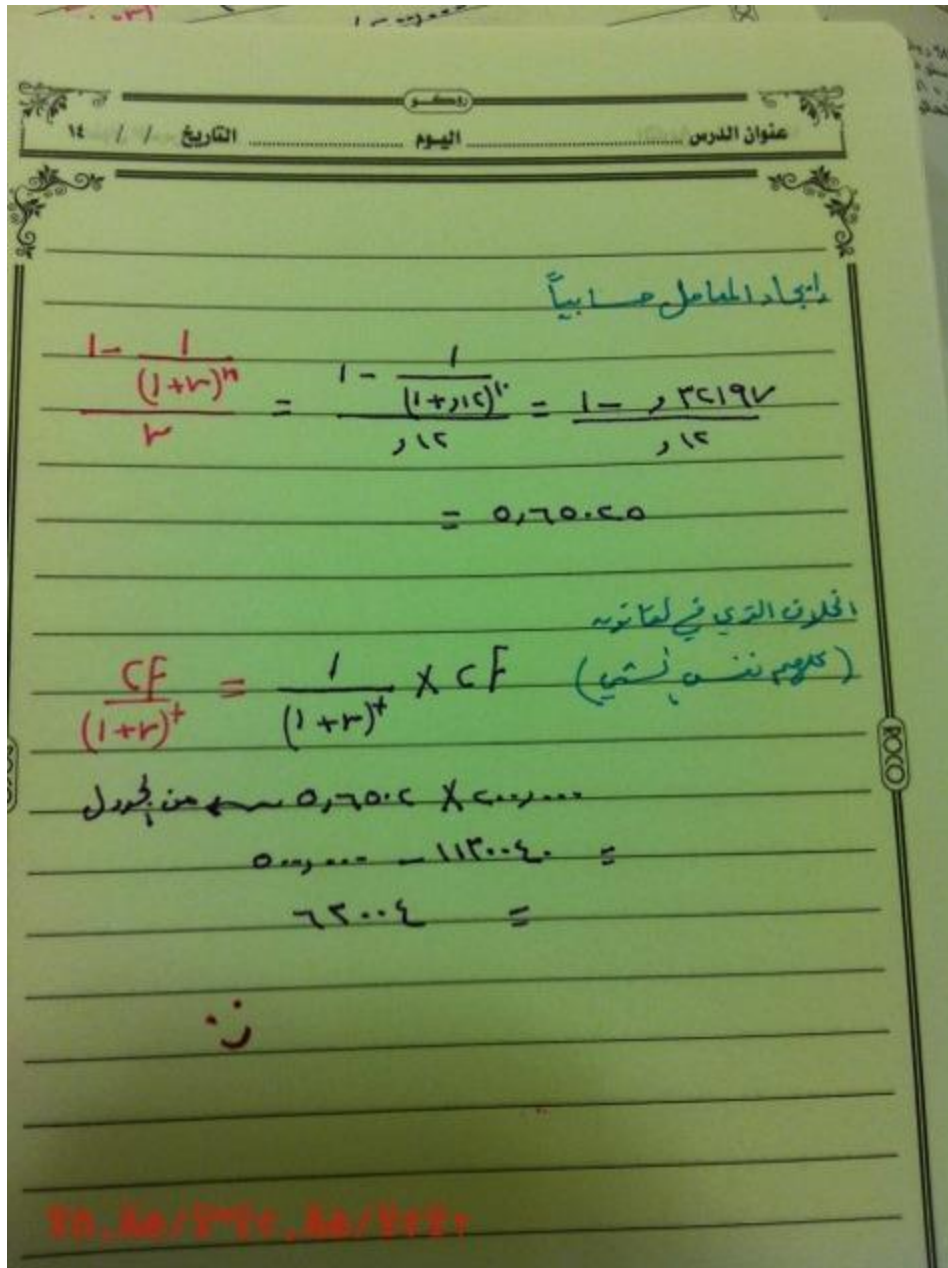 روكو
عنوان الدرس ........ اليوم ........ التاريخ / / ١٤
إيجاد المعامل حسابياً
(1 - 1/(1+r)^n) / r = (1 - 1/(١+,١٢)^١٠) / ,١٢ = (1 - ,٣٢١٩٧) / ,١٢
= ٥,٦٥٠٢٥
الخلاف الذي في القانون
(كلهم نفس الشي)
CF/(1+r)^t = 1/(1+r)^t X CF
٢٠٠,٠٠٠ X ٥,٦٥٠٢ ← من الجدول
= ١١٣٠٠٤٠ - ٥٠٠,٠٠٠
= ٦٣٠٠٤
ROCO